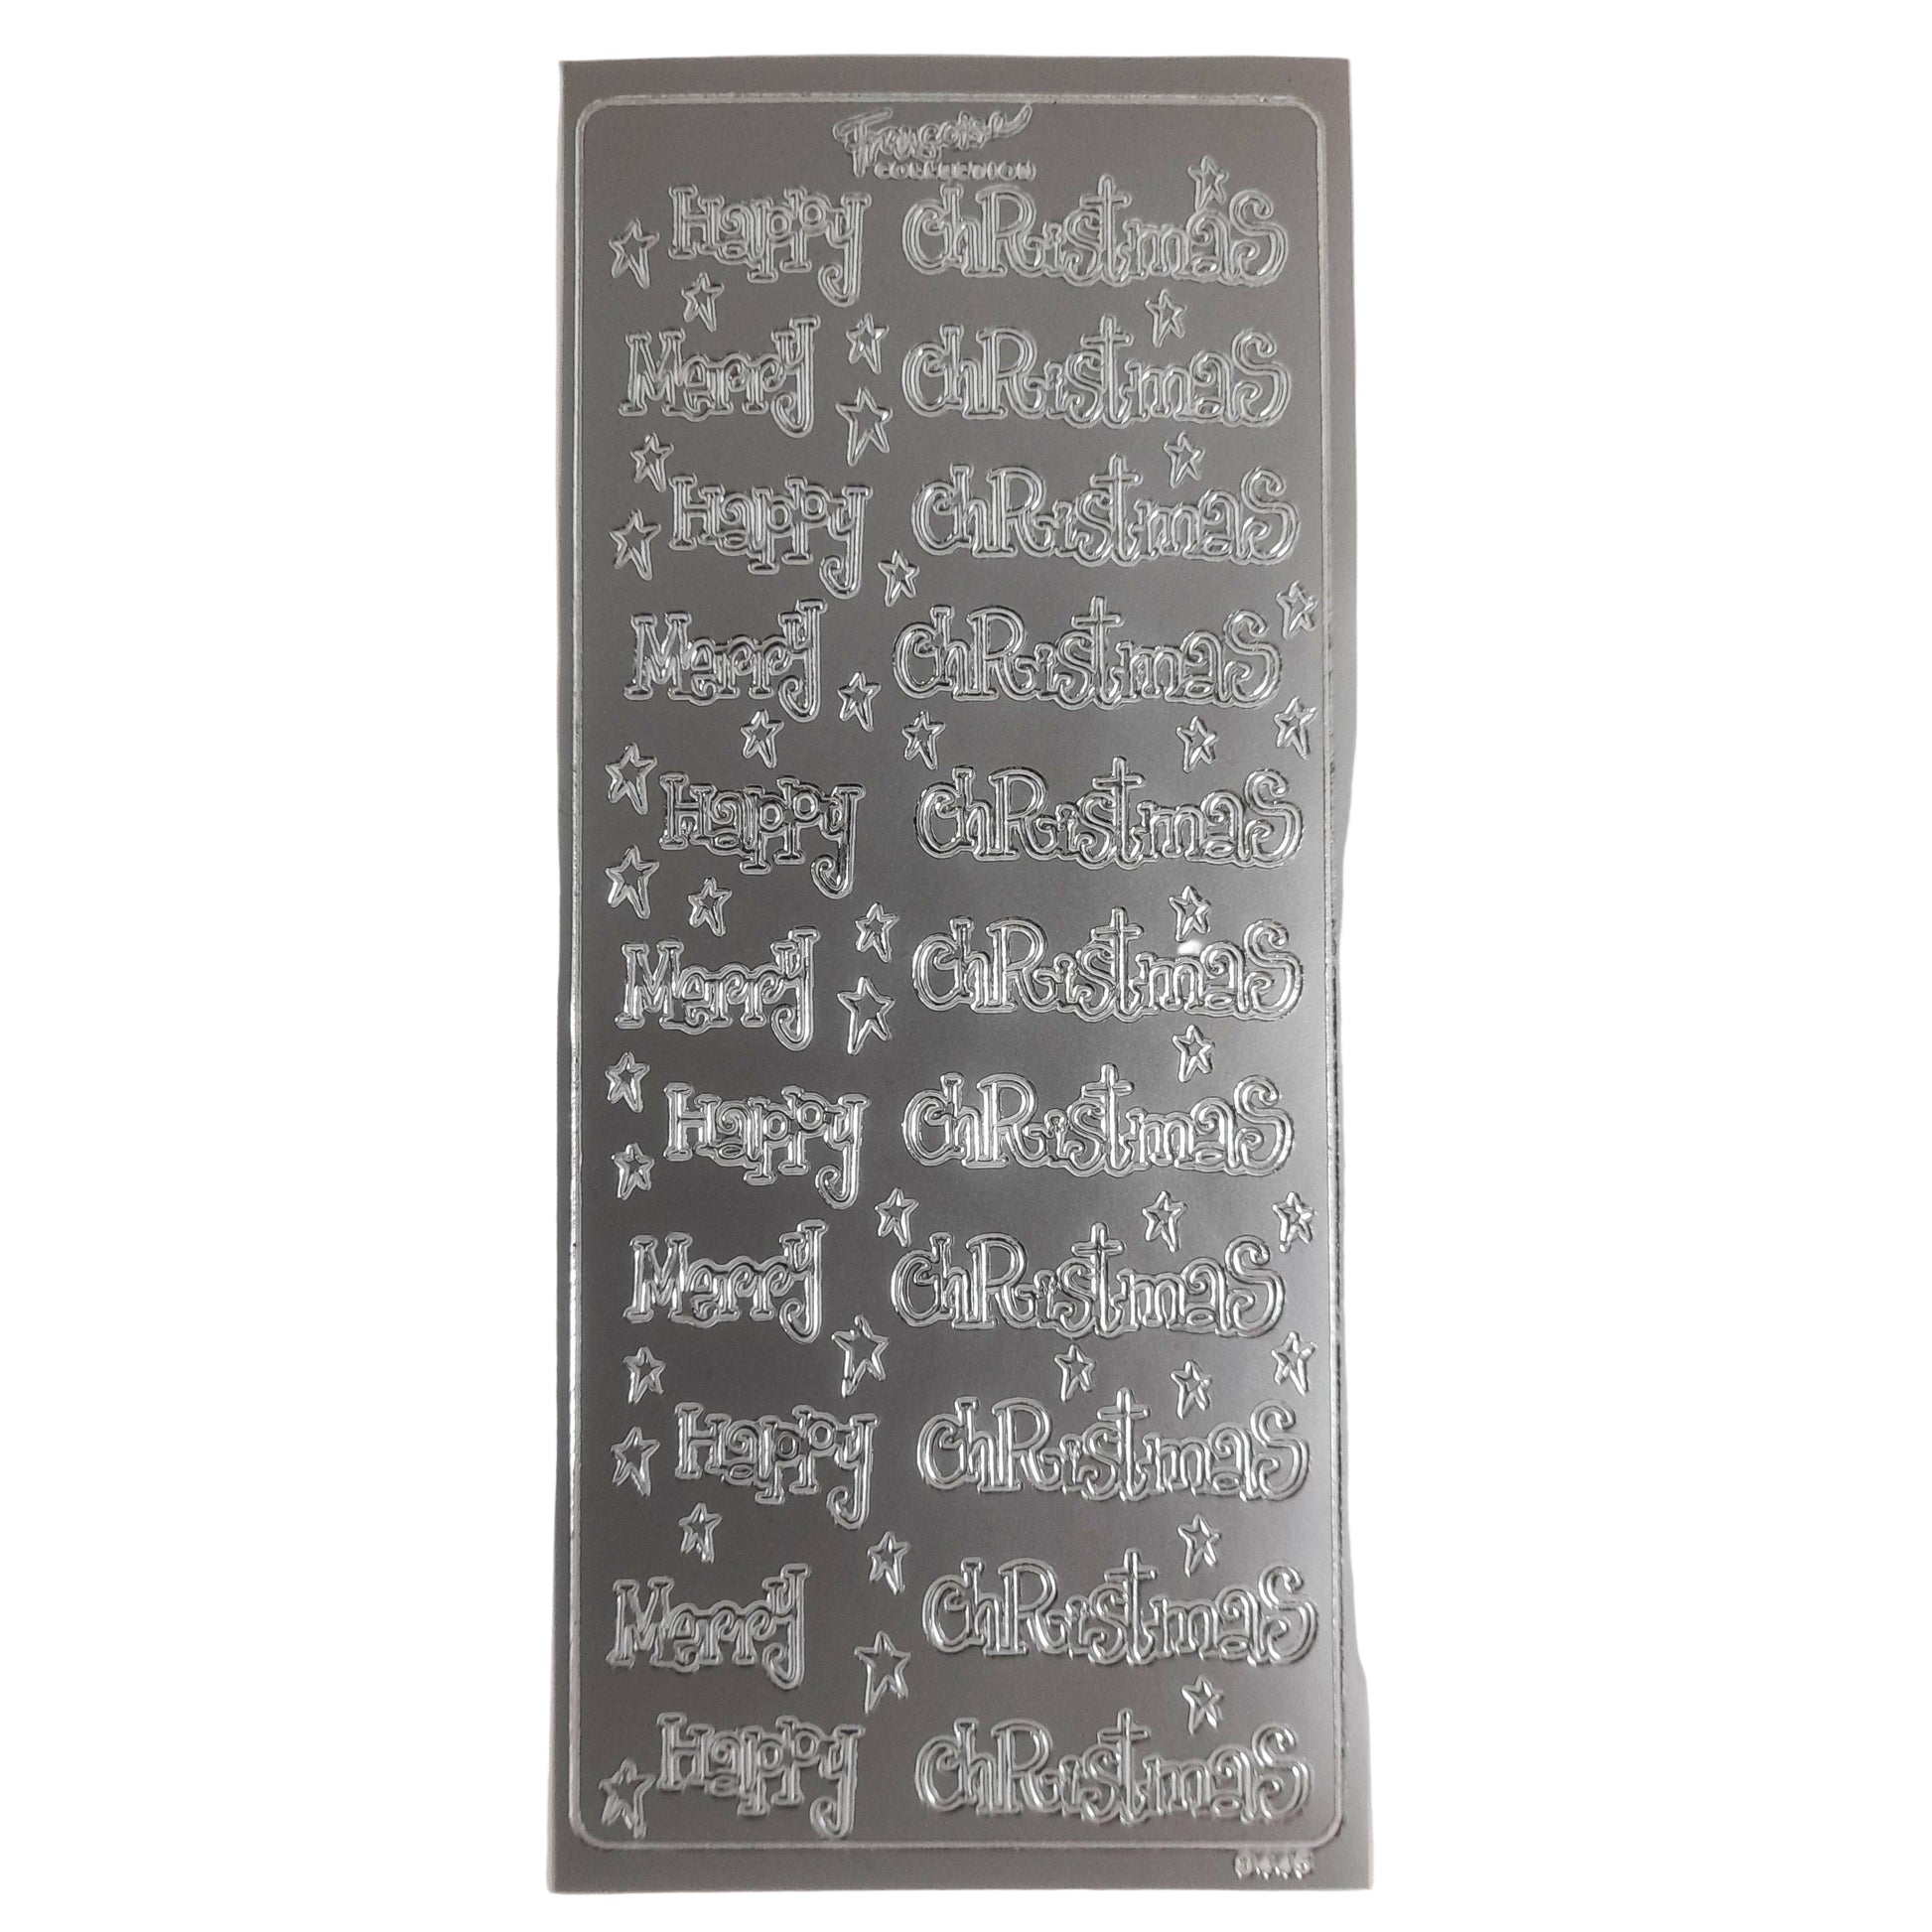 Françoise
COLLECTION
Happy ChRistmas
Merry ChRistmas
Happy ChRistmas
Merry ChRistmas
Happy ChRistmas
Merry ChRistmas
Happy ChRistmas
Merry ChRistmas
Happy ChRistmas
Merry ChRistmas
Happy ChRistmas